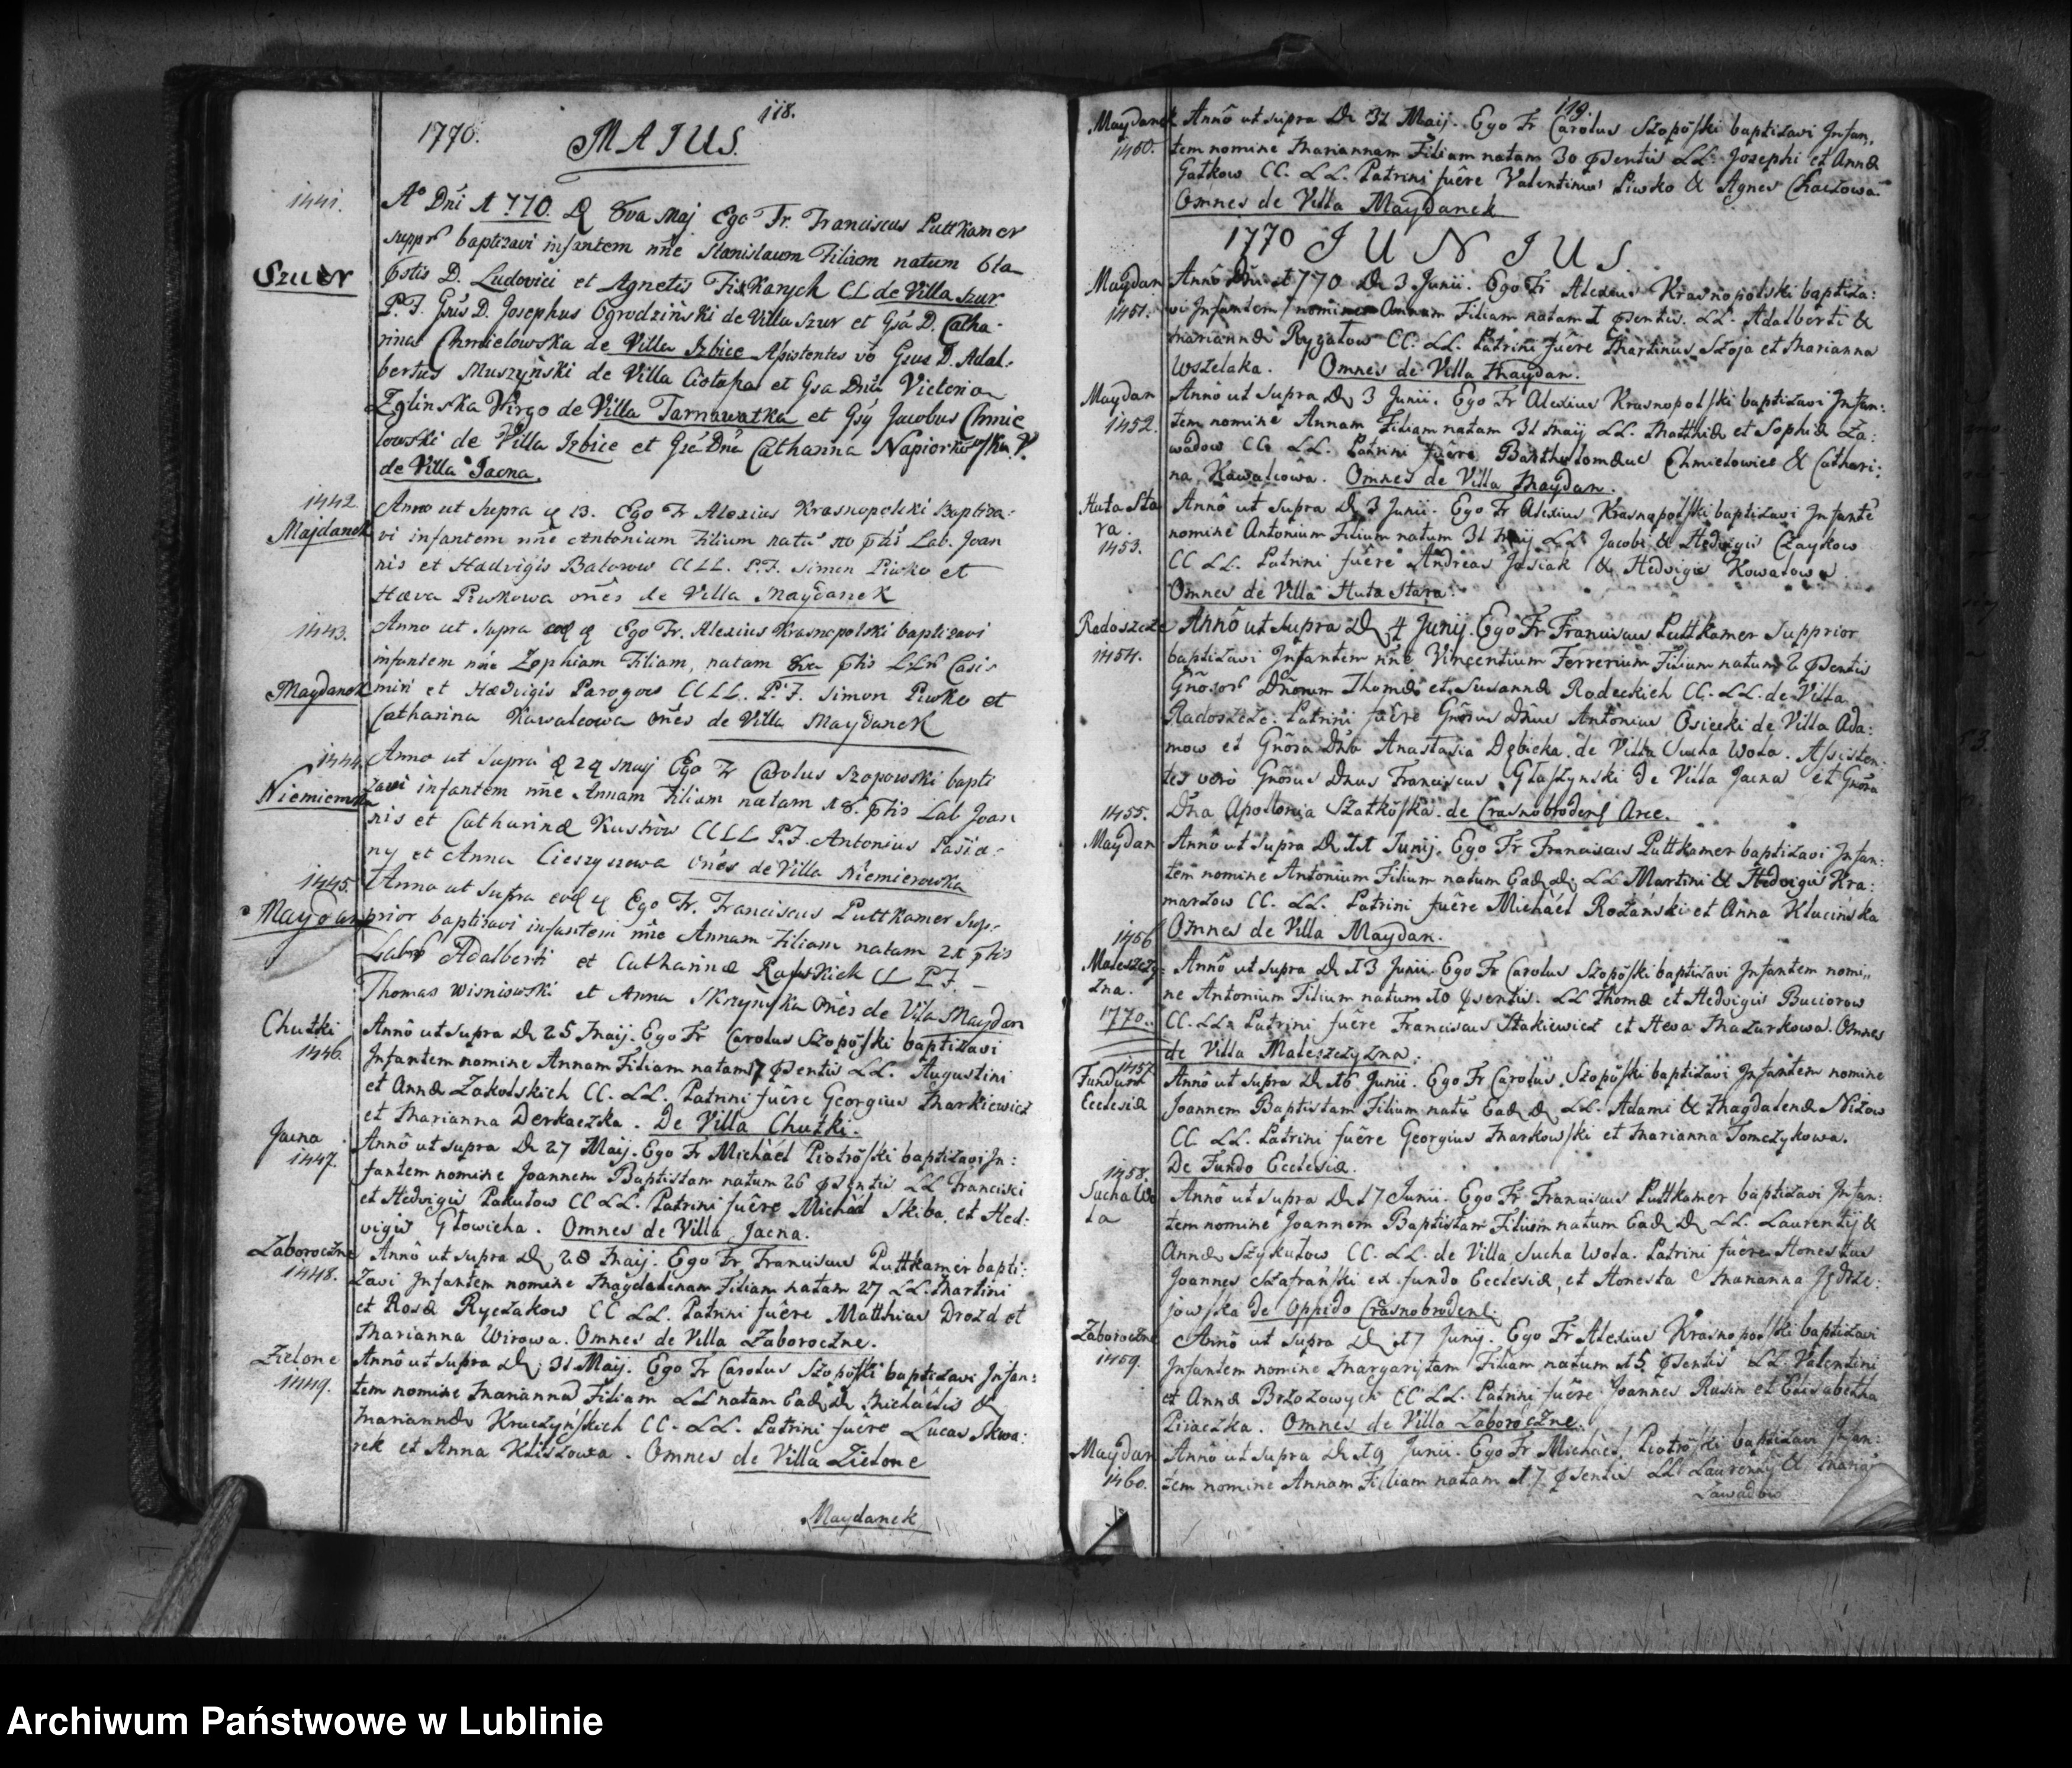 118.
1770. MAIUS.
1441. Ao Dni 1770. D 8va Maj Ego Fr. Franciscus Puttkamer
suppr baptizavi infantem nne Stanislaum Filium natum 6ta
Szuur
D. Ludovici et Agnetis CL de Villa Szur
P.F. Gsus D. Josephus Ogrodziński de Villa Szur et Gsa D. Catha-
rina Chmielowska de Villa Izbice Assistentes vo Gsus D. Adal-
bertus Muszyński de Villa Ciotusza et Gsa Dna Victoria
Zglinska Virgo de Villa Tarnawatka et Gsy Jacobus Chmie
lowski de Villa Izbice et Gsa Dna Catharina V.
de Villa Jacna.
1442. Anno ut supra 13. Ego Fr Alexius Krasnopolski Baptiza-
Majdanek vi infantem nne Antonium Filium natu 10 Lab. Joan
nis et Hadvigis CLLL. P.F. Simon Piwko et
Haeva Piwkowa ones de Villa Maydanek
1443. Anno ut supra Ego Fr. Alexius Krasnopolski baptizavi
infantem nne Zophiam Filiam, natam 8va Casi-
Maydanek miri et Haedvigis Parogow CLLL. P.F. Simon Piwko et
Catharina Kawalcowa ones de Villa Maydanek
1444. Anno ut supra 24 Maij Ego Fr Carolus Szopowski bapti
Niemierowka zavi infantem nne Annam Filiam natam 18. Lab Joan
nis et Catharinæ Kustrow CLLL P.F. Antonius Pasie-
ny et Anna Cieszyszewa ones de Villa Niemierowka
1445. Anno ut supra Ego Fr. Franciscus Puttkamer Sup-
Maydan prior baptizavi infantem nne Annam Filiam natam 21
Labr Adalberti et Catharinæ CL P.F.
Thomas Wisniowski et Anna Skrzynska ones de Villa Maydan
Chutki Annô ut supra D 25 Maij. Ego Fr Carolus Szopoſki baptizavi
1446. Infantem nomine Annam Filiam natam 17 LL. Augustini
et Annæ Zakolskich CC. LL. Patrini fuêre Georgius Markiewicz
et Marianna Derkaczka. De Villa Chutki.
Jacna Annô ut supra D 27 Maij. Ego Fr Michàel Piotroſki baptizavi In:
1447. fantem nomine Joannem Baptistam natum 26 LL Francisci
et Hedvigis Pakutow CC LL. Patrini fuêre Michàel Skiba, et Hed:
vigis Głowicha. Omnes de Villa Jacna.
Zaboroczne Annô ut supra D 28 Maij. Ego Fr Franciscus Puttkamer bapti:
1448. zavi Infantem nomine Magdalenam Filiam natam 27 LL. Martini
et Rosæ Ryczakow CC LL. Patrini fuêre Matthias Drozd et
Marianna Wirowa. Omnes de Villa Zaboroczne.
Zielone Annô ut supra D 31 Maij. Ego Fr Carolus Szopoſki baptizavi Infan:
1449. tem nomine Mariannam Filiam LL natam Ead D Michaëlis &
Mariannæ Kruczynſkich CC. LL. Patrini fuêre Lucas Skwa:
rek et Anna Kliszowa. Omnes de Villa Zielone
Maydanek
119.
Maydanek Annô ut supra D 31 Maij. Ego Fr Carolus Szopoſki baptizavi Infan,,
1450. tem nomine Mariannam Filiam natam 30 LL. Josephi et Annæ
Gałkow CC. LL. Patrini fuêre Valentinus Piwko & Agnes
Omnes de Villa Maydanek
1770 JUNIUS.
Maydan Annô Dni 1770 D 3 Junii. Ego Fr Alexius Krasnopolski baptiza:
1451. vi Infantem nomine Annam Filiam natam 1 LL. Adalberti &
Mariannæ Rygałow CC. LL. Patrini fuêre Martinus Szoja et Marianna
Wszelaka. Omnes de Villa Maydan.
Maydan Annô ut supra D 3 Junii. Ego Fr Alexius Krasnopolſki baptizavi Infan:
1452. tem nomine Annam Filiam natam 31 Maij LL. Matthiæ et Sophiæ Za:
wadow CC LL. Patrini fuêre Bartholomæus Chmielowiec & Cathari:
na Kawalcowa. Omnes de Villa Maydan.
Huta Sta Annô ut supra D 3 Junii. Ego Fr Alexius Krasnopolſki baptizavi Infantê
ra. nomine Antonium Filium natum 31 Maij LL Jacobi & Hedvigis Czaykow
1453. CC LL. Patrini fuêre Andreas Josiak & Hedvigis Kowalowa.
Omnes de Villa Huta Stara.
Radoszcze Annô ut supra D 4 Junij. Ego Fr Franciscus Puttkamer Supprior
1454. baptizavi Infantem nne Vincentium Ferrerium Filium natum 2
Dnorum Thomæ et Susannæ Radeckich CC. LL. de Villa
Radoszcze. Patrini fuêre Gnosus Dnus Antonius Osiecki de Villa Ada:
mow et Gnosa Dna Anastasia Dębicka de Villa Sucha Wola. Assisten:
tes verò Gnosus Dnus Franciscus Głuszynski de Villa Jacna et Gnosa
1455. Dna Apollonia Szatkoſka. de Crasnobrodenſ Arce.
Maydan Annô ut supra D 11 Junij. Ego Fr Franciscus Puttkamer baptizavi Infan:
tem nomine Antonium Filium natum Ead D. LL Martini & Hedvigis Kra:
marzow CC. LL. Patrini fuêre Michàel Rozański et Anna Klucińska
1456 Omnes de Villa Maydan.
Maleszczy: Annô ut supra D 13 Junii. Ego Fr Carolus Szopoſki baptizavi Infantem nomi,,
zna. ne Antonium Filium natum 10 LL Thomæ et Hedvigis Buciorow
1770. CC. LL. Patrini fuêre Franciscus Stakiewicz et Heva Mazurkowa. Omnes
de Villa Maleszczyzna.
1457.
Fundum Annô ut supra D 16 Junii. Ego Fr Carolus Szopoſki baptizavi Infantem nomine
Ecclesiæ Joannem Baptistam Filium natû Ead D LL. Adami & Magdalenæ Nizow
CC LL. Patrini fuêre Georgius Markowſki et Marianna Tomczykowa.
De Fundo Ecclesiæ.
1458.
Sucha Wo Annô ut supra D 17 Junii. Ego Fr Franciscus Puttkamer baptizavi Infan:
la tem nomine Joannem Baptistam Filium natum Ead D LL. Laurentij &
Annæ Szykułow CC. LL. de Villa Sucha Wola. Patrini fuêre Honestus
Joannes Szafrańſki ex fundo Ecclesiæ, et Honesta Marianna Jędrze:
jowſka de Oppido Crasnobrodenſ.
Zaboroczne Annô ut supra D 17 Junij. Ego Fr Alexius Krasnopolſki baptizavi
1459. Infantem nomine Margaritam Filiam natam 15 LL. Valentini
et Annæ Brzozowych CC LL. Patrini fuêre Joannes Rusin et Elisabetha
Pisaczka. Omnes de Villa Zaboroczne.
Maydan Annô ut supra D 19 Junii. Ego Fr Michàel Piotroſki baptizavi Infan:
1460. tem nomine Annam Filiam natam 17 LL Laurentij &
Zawadow
Archiwum Państwowe w Lublinie